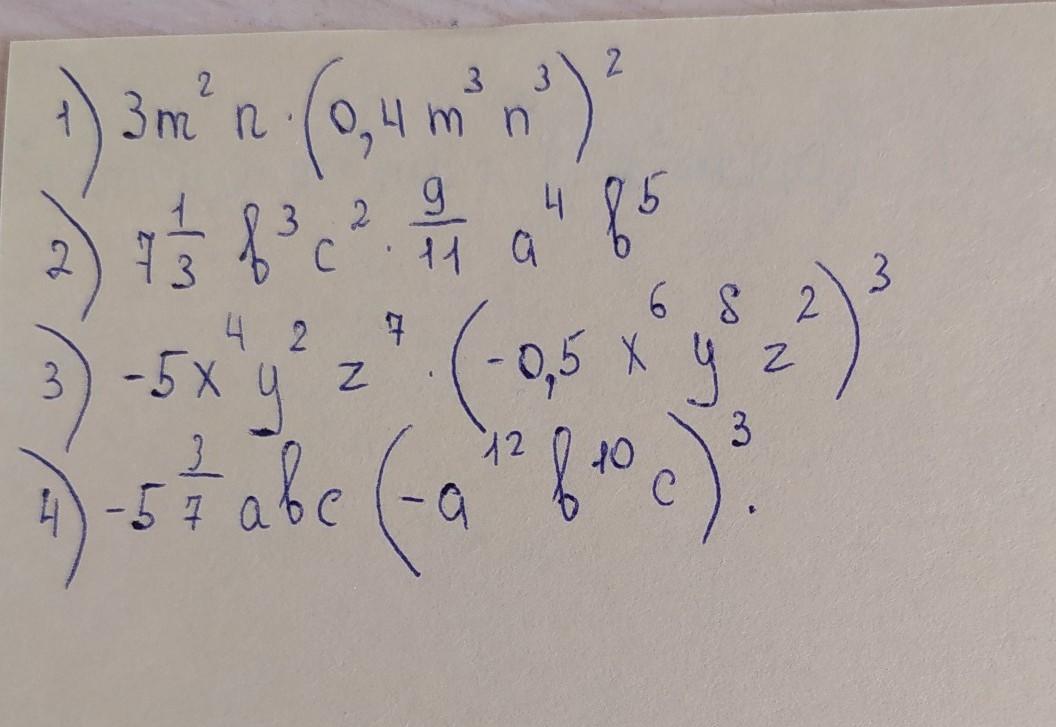 1) 3m² n · (0,4 m³ n³)²
2) 7 1/3 b³ c² · 9/11 a⁴ b⁵
3) -5x⁴y² z⁷ · (-0,5 x⁶ y⁸ z²)³
4) -5 3/7 abc (-a¹² b¹⁰ c)³.